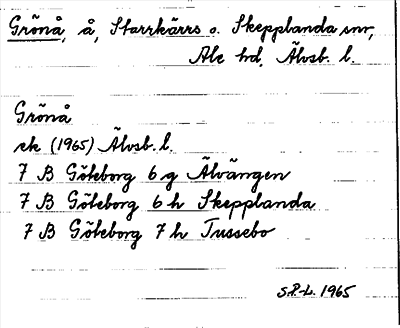 Grönå, å, Starrkärrs o. Skepplanda snr,
Ale hd, Älvsb. l.
Grönå
ek (1965) Älvsb. l.
7 B Göteborg 6 g Älvängen
7 B Göteborg 6 h Skepplanda
7 B Göteborg 7 h Tussebo
S.P.-L. 1965